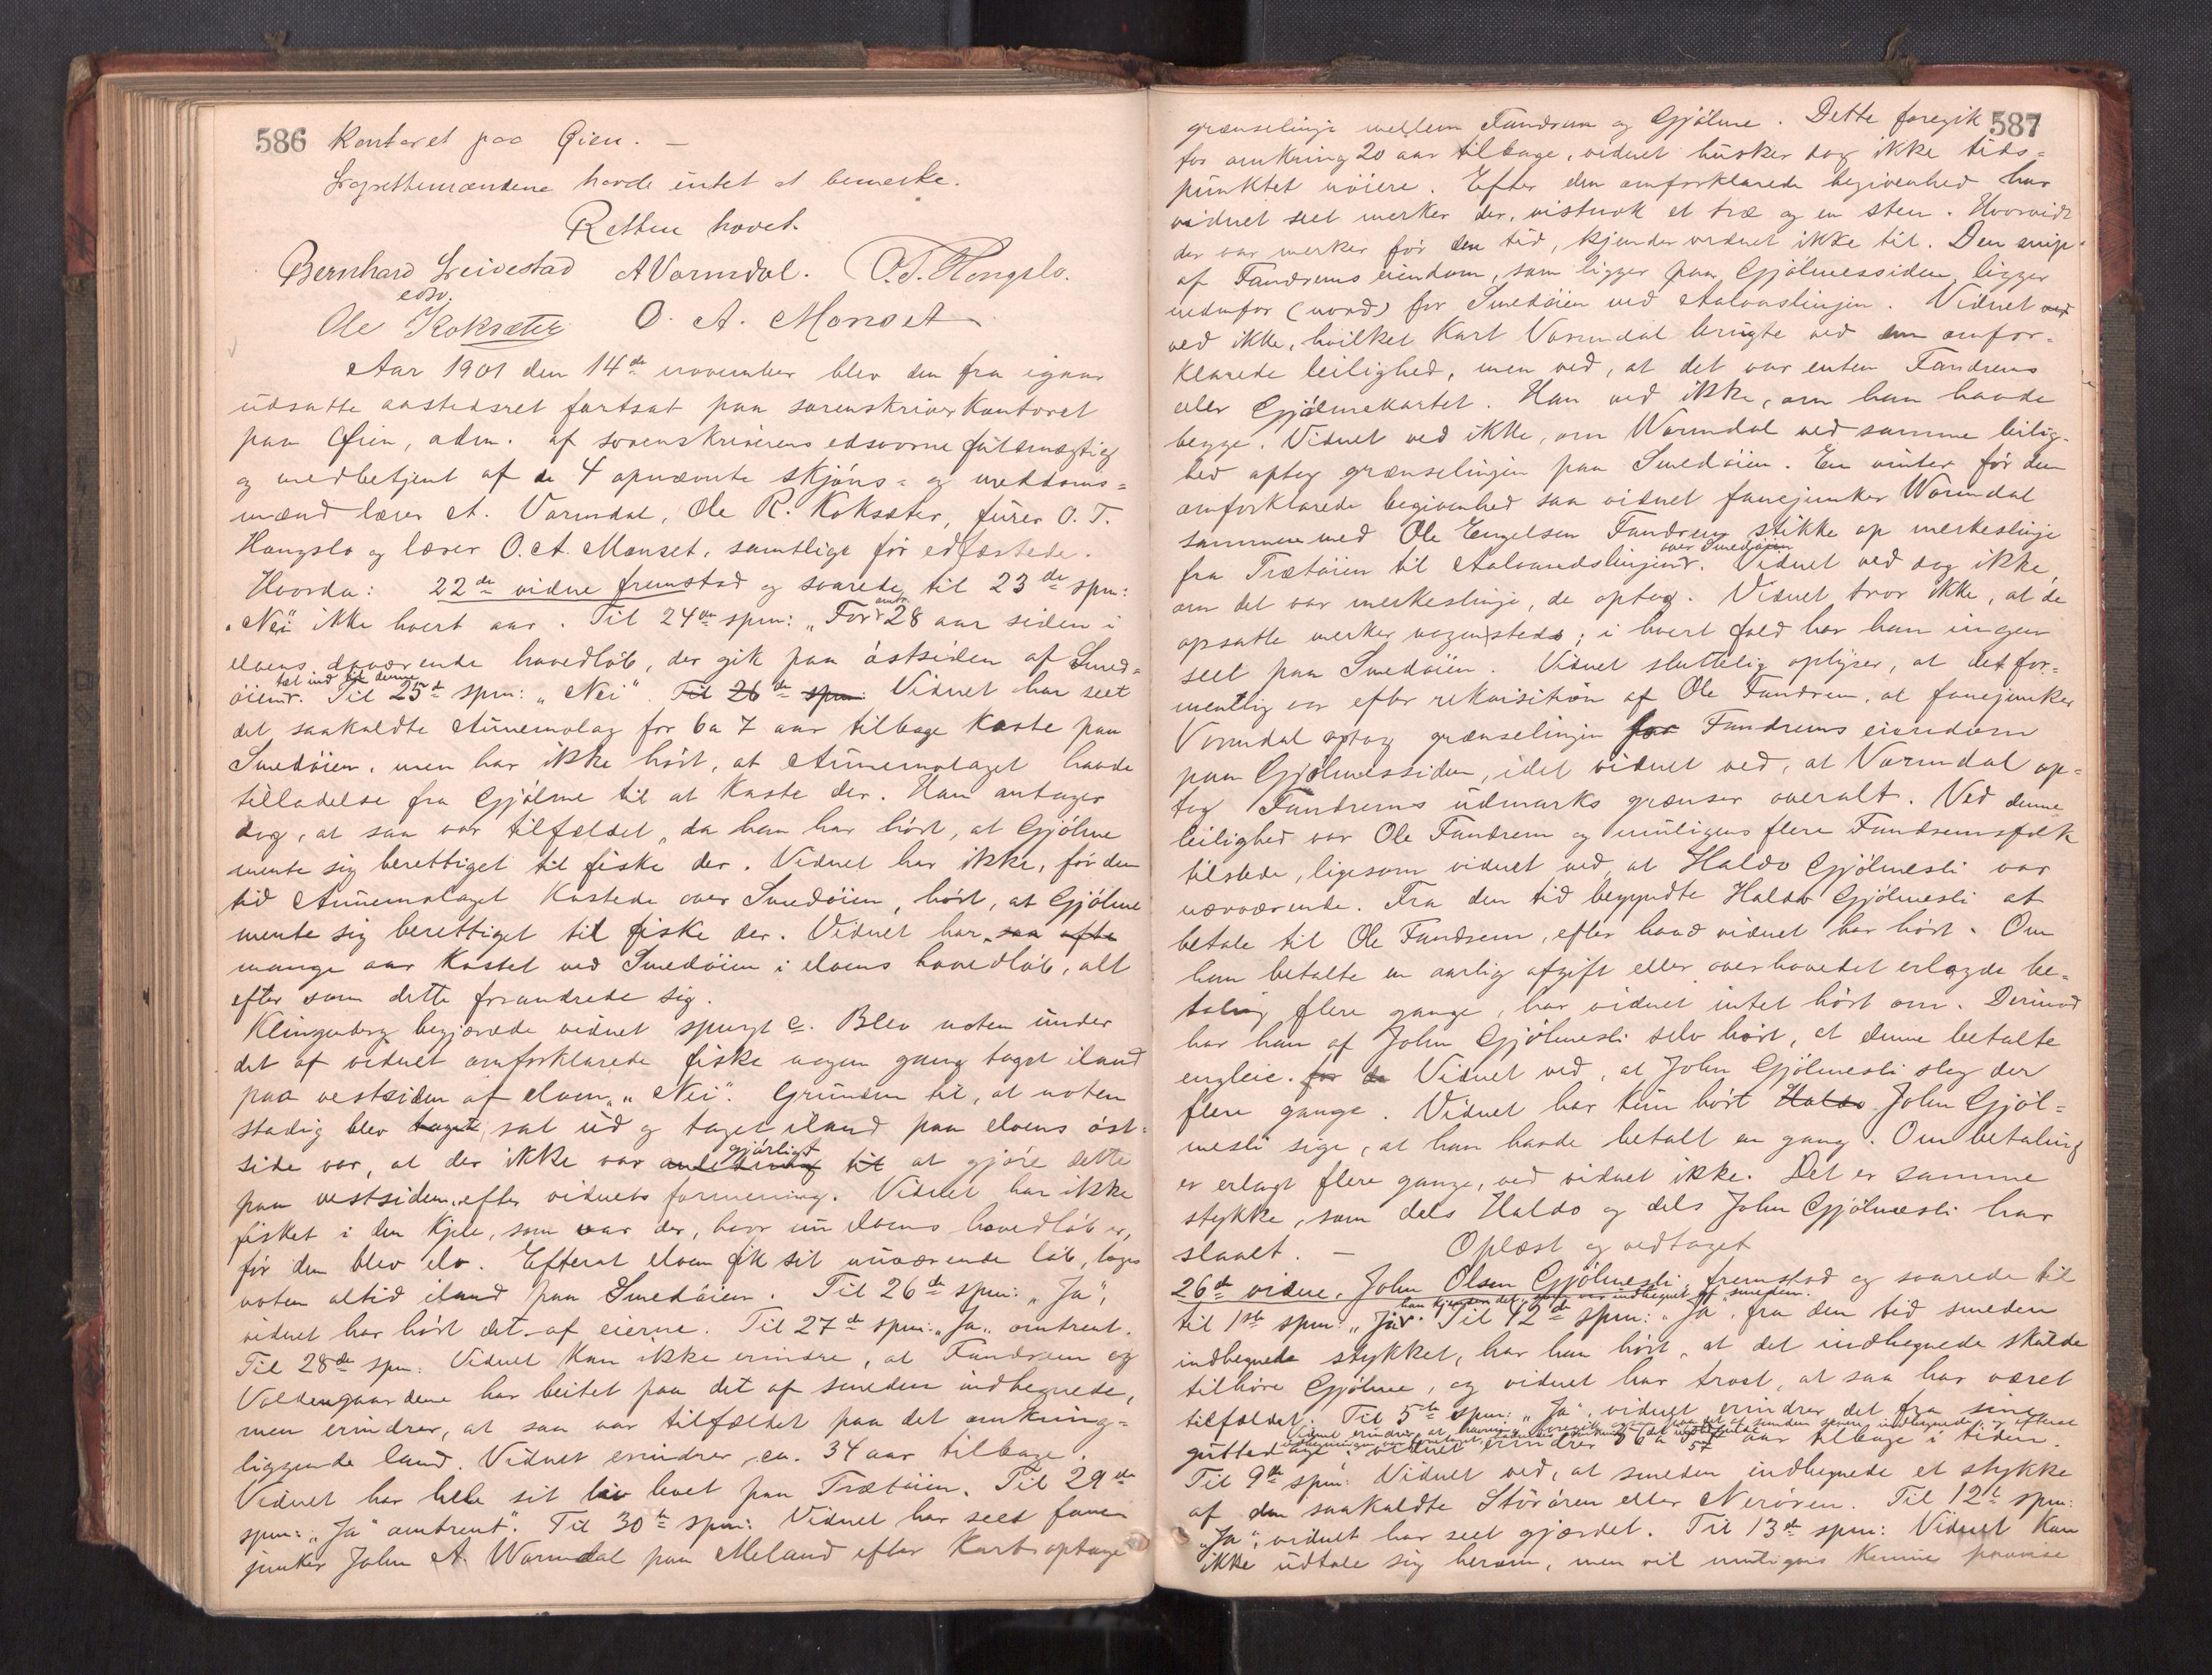 586
Kontoret paa Øien. —
Lagrettemændene havde intet at bemerke.
Retten hævet.
Bernhard Leivestad A Varmdal. O. T. Hongslo.
edsv.
Ole Koksæter O. A. Monset
Aar 1901 den 14de november blev den fra igaar
udsatte aastedsret fortsat paa sorenskriverkontoret
paa Øien, adm. af sorenskriverens edsvorne fuldmægtig
og medbetjent af de 4 opnævnte skjøns- og meddoms-
mænd lærer A. Varmdal, Ole R. Koksæter, furer O. T.
Hongslo og lærer O. A. Monset, samtlige før edfæstede.
Hvorda: 22de vidne fremstod og svarede til 23de spm:
"Nei" ikke hvert aar. Til 24de spm: "For omtr. 28 aar siden i
elvens daværende hovedløb, der gik paa østsiden af Smed-
øien tæt ind til denne. Til 25de spm: "Nei". Til 26de spm: Vidnet har seet
det saakaldte Aunemolag for 6 a 7 aar tilbage kaste paa
Smedøien, men har ikke hørt, at Aunemolaget havde
tilladelse fra Gjølme til at kaste der. Han antager
dog, at saa var tilfældet, da han har hørt, at Gjølme
mente sig berettiget til fiske der. Vidnet har ikke, før den
tid Aunemolaget kastede over Smedøien, hørt, at Gjølme
mente sig berettiget til fiske der. Vidnet har saa ofte
mange aar kastet ved Smedøien i elvens hovedløb, alt
efter som dette forandrede sig.
Klingenberg begjærede vidnet spurgt c. Blev noten under
det af vidnet omforklarede fiske nogen gang taget iland
paa vestsiden af elven, "Nei". Grunden til, at noten
stadig blev taget, sat ud og taget iland paa elvens øst-
side var, at der ikke var anledning til gjørligt at gjøre dette
paa vestsiden, efter vidnets formening. Vidnet har ikke
fisket i den kjele, som var der, hvor nu elvens hovedløb er,
før den blev elv. Efterat elven fik sit nuværende løb, toges
noten altid iland paa Smedøien. Til 26de spm: "Ja",
vidnet har hørt det af eierne. Til 27de spm: "Ja" omtrent.
Til 28de spm: Vidnet kan ikke erindre, at Fandrem og
Voldengaardene har beitet paa det af smeden indhegnede,
men erindrer, at saa var tilfældet paa det omkring-
liggende land. Vidnet erindrer ca. 34 aar tilbage.
Vidnet har hele sit liv levet paa Trætøien. Til 29de
spm: "Ja" omtrent". Til 30te spm: Vidnet har seet fane-
junker John A. Warmdal paa Meland efter kart optage
587
grænselinje mellem Fandrem og Gjølme. Dette foregik
for omkring 20 aar tilbage, vidnet husker dog ikke tids-
punktet nøiere. Efter den omforklarede begivenhed har
vidnet seet merker der, vistnok et træ og en sten. Hvorvidt
der var merker før den tid, kjender vidnet ikke til. Den snip
af Fandrems eiendom, som ligger paa Gjølmessiden, ligger
nedenfor (nord) for Smedøien ved Aalvaslinjen. Vidnet ved
ved ikke, hvilket kart Varmdal brugte ved den omfor-
klarede leilighed, men ved, at det var enten Fandrems
eller Gjølmekartet. Han ved ikke, om han havde
begge. Vidnet ved ikke, om Warmdal ved samme leilig-
hed optog grænselinjen paa Smedøien. En vinter før den
omforklarede begivenhed saa vidnet fanejunker Warmdal
sammen med Ole Engelsen Fandrem stikke op merkeslinje
fra Trætøien til Aalvundslinjen over Smedøien. Vidnet ved dog ikke,
om det var merkeslinje, de optog. Vidnet tror ikke, at de
opsatte merker nogensteds; i hvert fald har han ingen
seet paa Smedøien. Vidnet sluttelig oplyser, at det for-
mentlig var efter rekvisition af Ole Fandrem, at fanejunker
Varmdal optog grænselinjen for Fandrems eiendom
paa Gjølmessiden, idet vidnet ved, at Varmdal op-
tog Fandrems udmarks grænser overalt. Ved denne
leilighed var Ole Fandrem og muligens flere Fandremsfolk
tilstede, ligesom vidnet ved, at Haldo Gjølmesli var
nærværende. Fra den tid begyndte Haldo Gjølmesli at
betale til Ole Fandrem, efter hvad vidnet har hørt. Om
han betalte en aarlig afgift eller overhovedet erlagde be-
taling flere gange, har vidnet intet hørt om. Derimod
har han af John Gjølmesli selv hørt, at denne betalte
engleie. for de Vidnet ved, at John Gjølmesli slog der
flere gange. Vidnet har kun hørt Haldo John Gjøl-
mesli sige, at han havde betalt en gang. Om betaling
er erlagt flere gange, ved vidnet ikke. Det er samme
stykke, som dels Haldo og dels John Gjølmesli har
slaaet. — Oplæst og vedtaget
26de vidne, John Olsen Gjølmesli, fremstod og svarede til
til 1ste spm: "Ja". Til 12de spm: "Ja", fra den tid smeden
indhegnede stykket, har han hørt, at det indhegnede skulde
tilhøre Gjølme, og vidnet har troet, at saa har været
tilfældet. Til 5te spm: "Ja", vidnet erindrer det fra sine
gutte vidnet erindrer 56 a 57 aar tilbage i tiden.
Til 9de spm: Vidnet ved, at smeden indhegnede et stykke
af den saakaldte Storøren eller Nerøren. Til 12te spm:
"Ja", vidnet har seet gjærdet. Til 13de spm: Vidnet kan
ikke udtale sig herom, men vil muligens kunne paavise